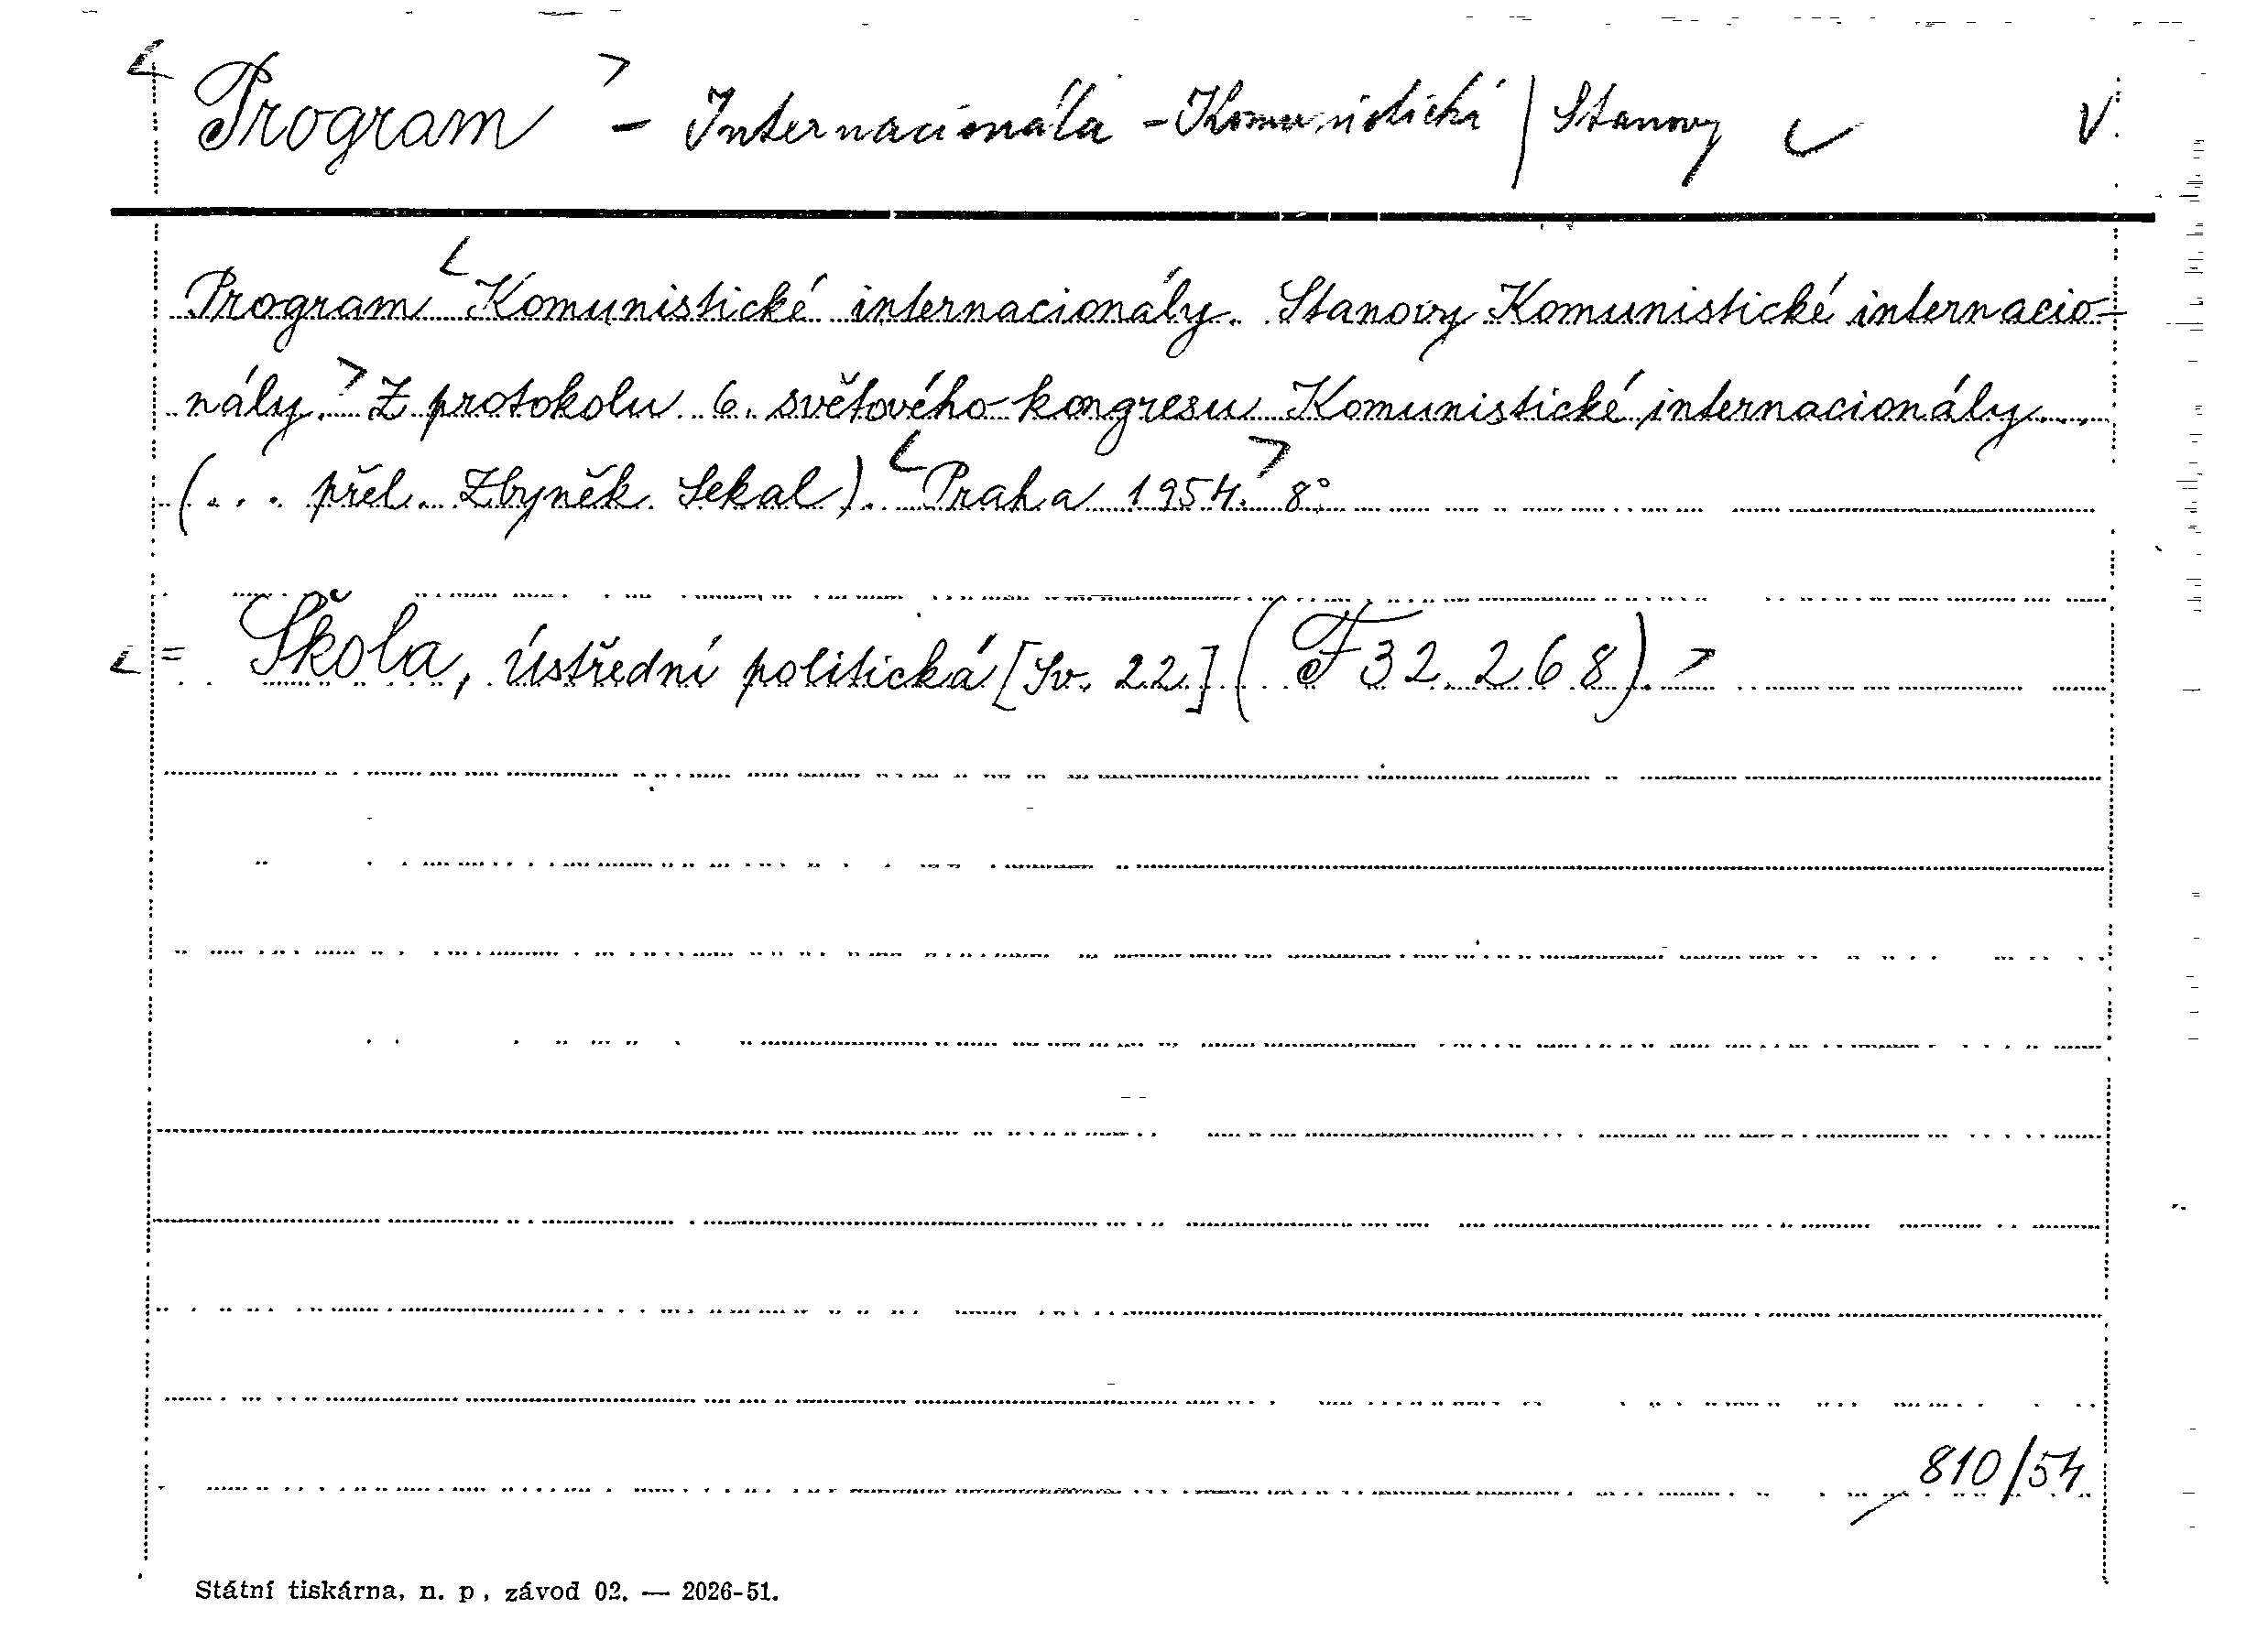 < Program > - Internacionála - Komunistická / Stanovy V.
Program < Komunistické internacionály. Stanovy Komunistické internacio-
nály. > Z protokolu 6. světového kongresu Komunistické internacionály...
(... přel. Zbyněk Sekal). < Praha 1954. > 8°
< = Škola, ústřední politická [Sv. 22.] (F 32.268). >
810/54
Státní tiskárna, n. p., závod 02. — 2026-51.